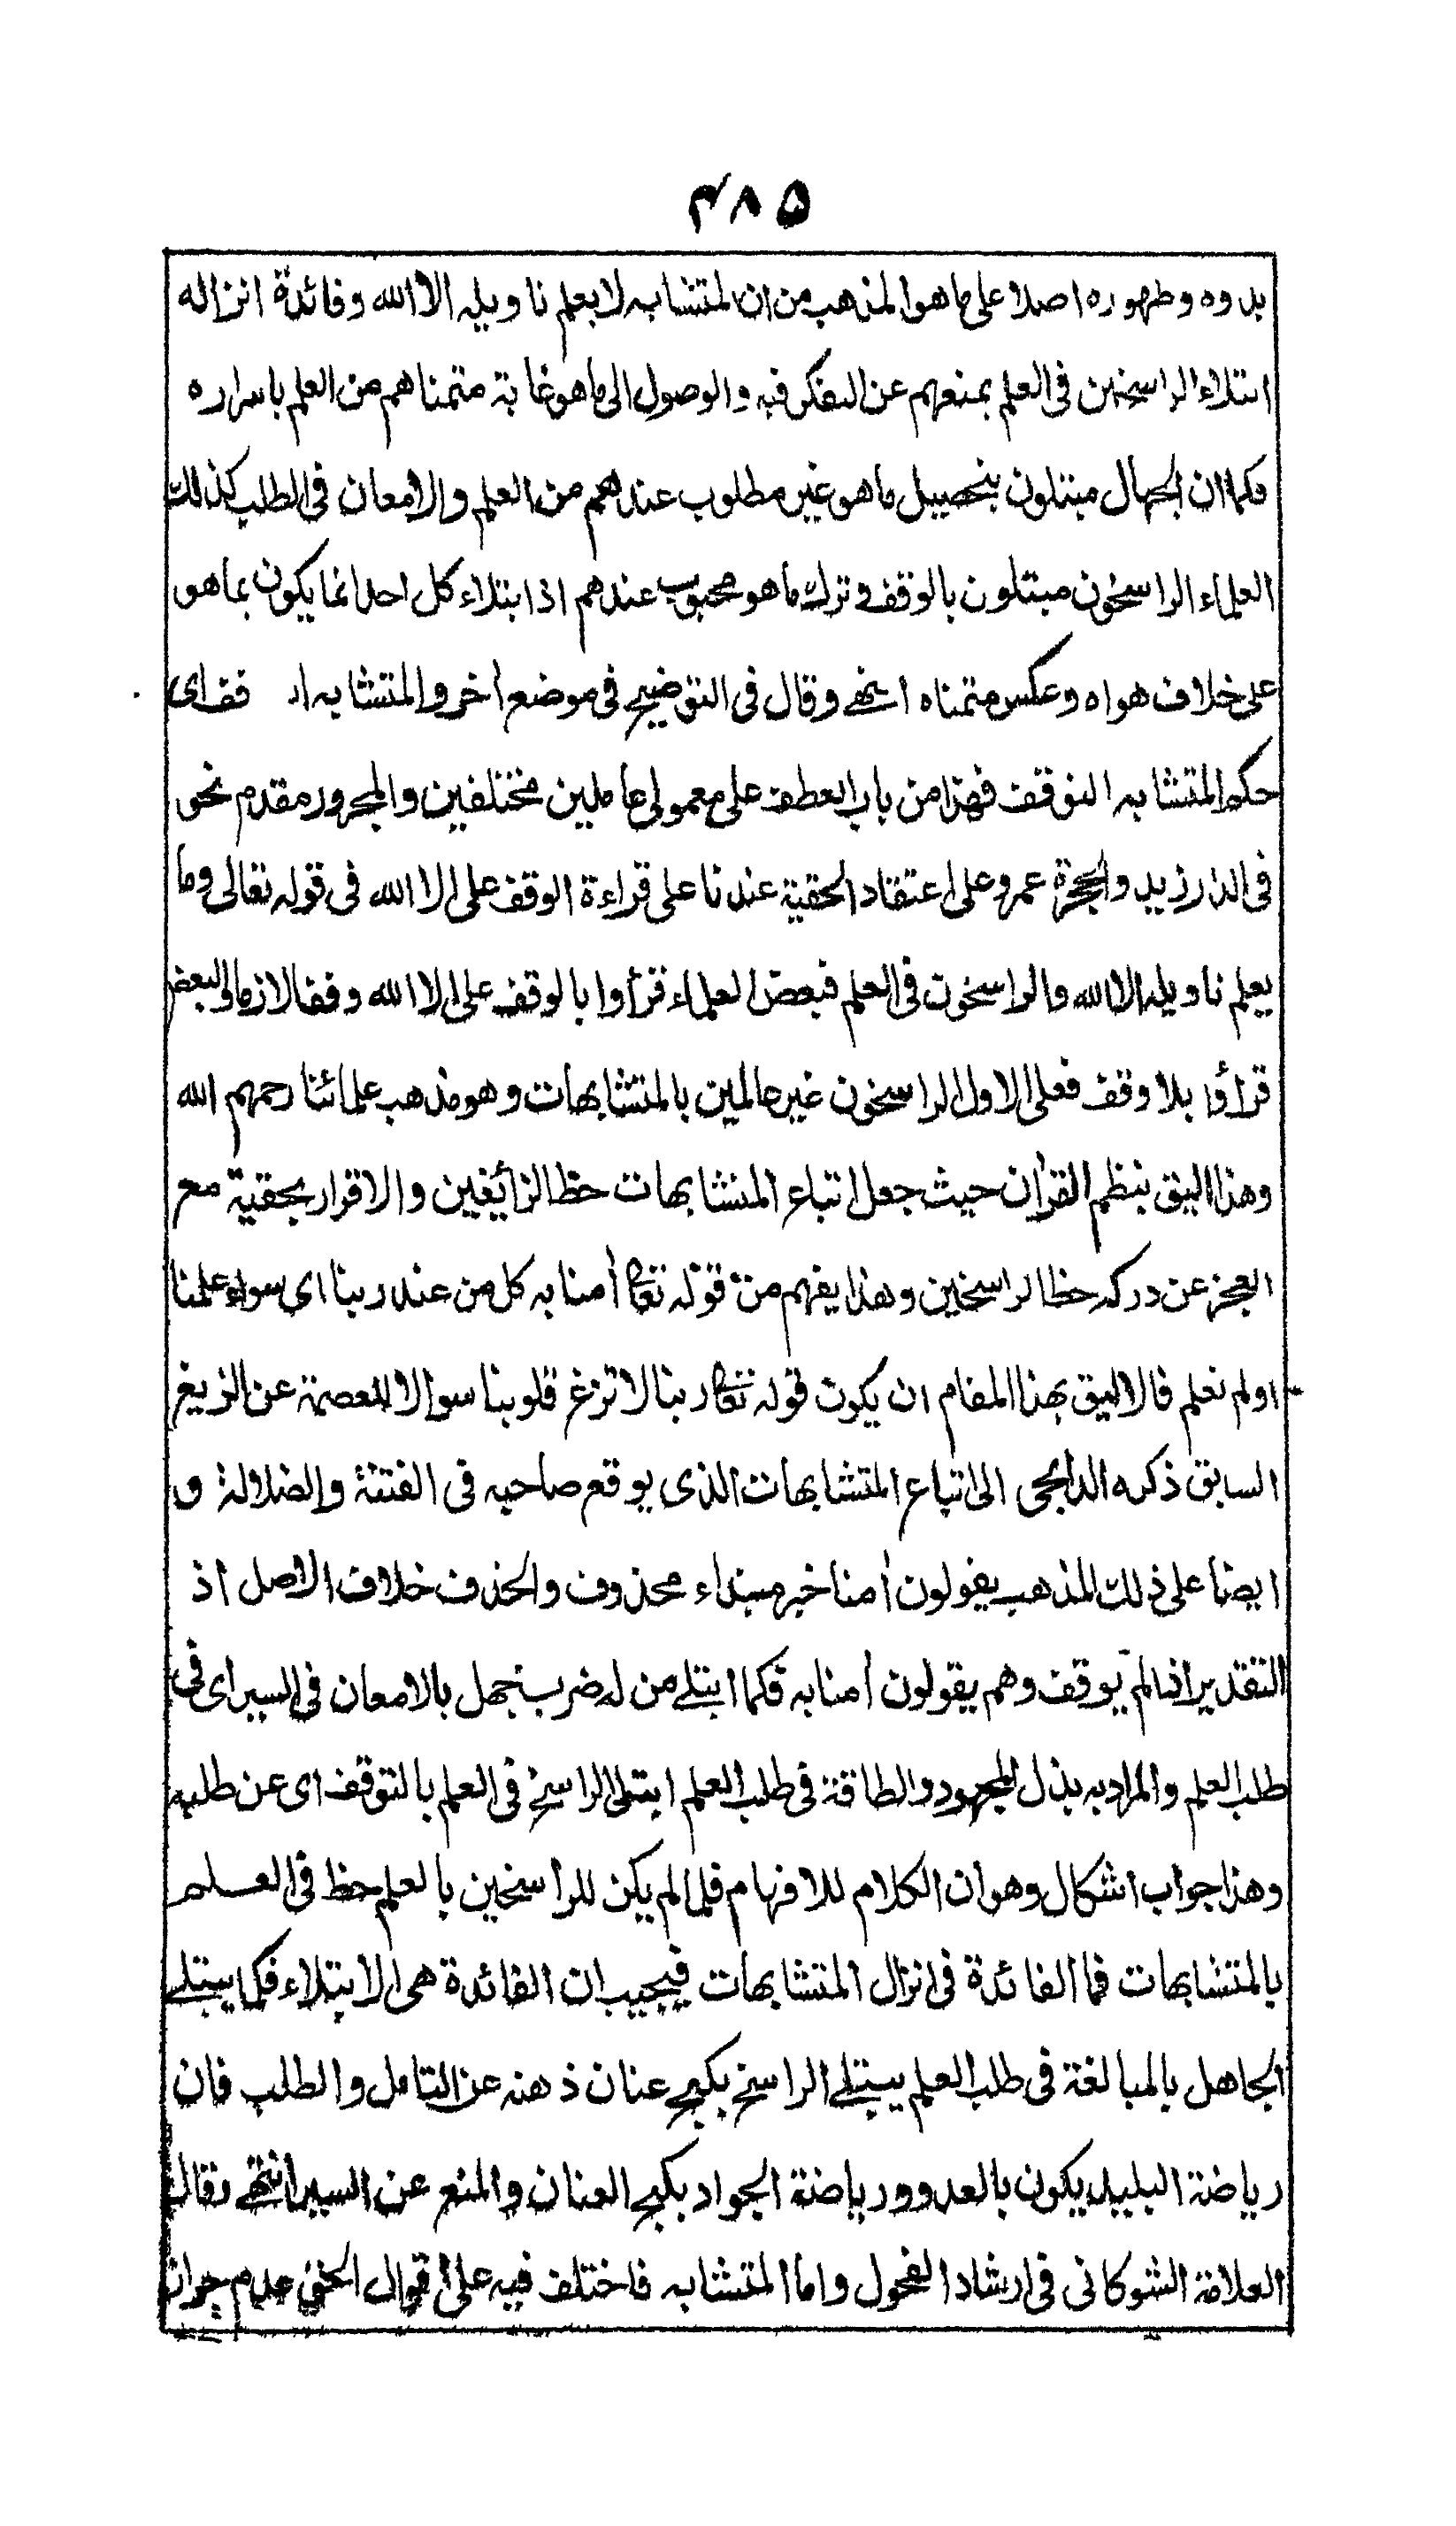 ۴۸۵
بدوه وظهوره اصلا على ما هو المذهب من ان المتشابه لا يعلم تاويله الا الله وفائدة انزاله
ابتلاء الراسخين فى العلم بمنعهم عن التفكر فيه والوصول الى ما هو غاية متمناهم من العلم باسراره
فكما ان الجهال مبتلون بتحصيل ما هو غير مطلوب عندهم من العلم والامعان فى الطلب كذلك
العلماء الراسخون مبتلون بالوقف وترك ما هو محبوب عندهم اذ ابتلاء كل احد انما يكون بما هو
على خلاف هواه وعكس متمناه انتهى وقال فى التوضيح فى موضع أخر والمتشابه فف اى
حكم المتشابه التوقف فهذا من باب العطف على معمولى عاملين مختلفين والمجرور مقدم نحو
فى الدار زيد والحجرة عمرو على اعتقاد الحقية عندنا على قراءة الوقف على الا الله فى قوله تعالى وما
يعلم تاويله الا الله والراسخون فى العلم فبعض العلماء قرأوا بالوقف على الا الله وقفا لازما والبعض
قرأوا بلا وقف فعلى الاول الراسخون غير عالمين بالمتشابهات وهو مذهب علمائنا رحمهم الله
وهذا اليق بنظم القرأن حيث جعل اتباع المتشابهات حظ الزائغين والاقرار بحقية مع
العجز عن دركه حظ الراسخين وهذا يفهم من قوله تعالى أمنا به كل من عند ربنا اى سواء علمنا
اولم نعلم فالاليق بهذا المقام ان يكون قوله تعالى ربنا لا تزغ قلوبنا سوالا للعصمة عن الزيغ
السابق ذكره الداعى الى اتباع المتشابهات الذى يوقع صاحبه فى الفتنة والضلالة و
ايضا على ذلك المذهب يقولون أمنا خبر مبتداء محذوف والحذف خلاف الاصل اذ
التقدير اذا لم يوقف وهم يقولون أمنا به فكما ابتلى من له ضرب جهل بالامعان فى السير اى فى
طلب العلم والمراد به بذل المجهود والطاقة فى طلب العلم ابتلى الراسخ فى العلم بالتوقف اى عن طلبه
وهذا جواب اشكال وهو ان الكلام للافهام فلما لم يكن للراسخين بالعلم حظ فى العلم
بالمتشابهات فما الفائدة فى انزال المتشابهات فيجيب ان الفائدة هى الابتلاء فكما يبتلى
الجاهل بالمبالغة فى طلب العلم يبتلى الراسخ بكبح عنان ذهنه عن التامل والطلب فان
رياضة البليد يكون بالعدو ورياضة الجواد بكبح العنان والمنع عن السير انتهى وقال
العلامة الشوكانى فى ارشاد الفحول واما المتشابه فاختلف فيه على اقوال الحق عدم جواز